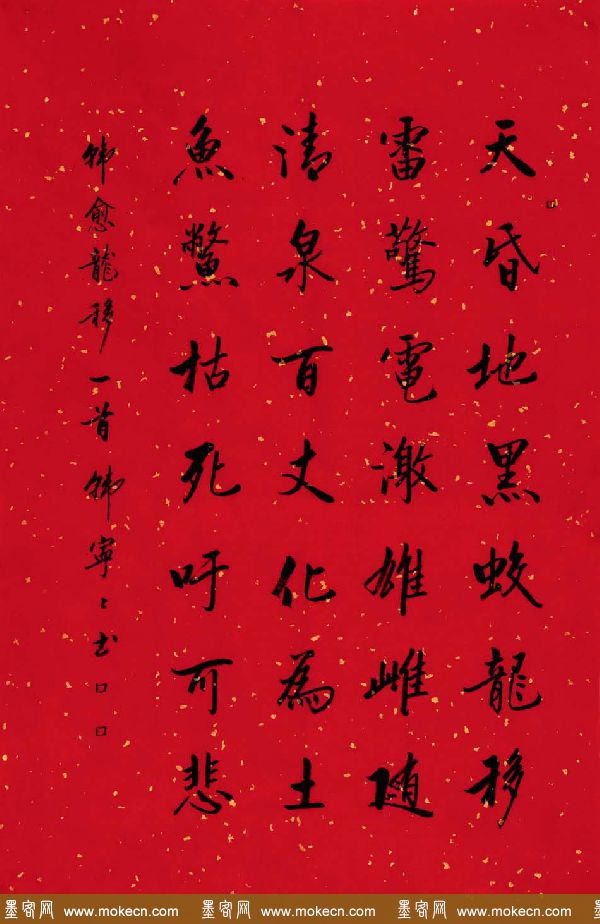 天昏地黑蛟龍移
雷驚電激雄雌隨
清泉百丈化為土
魚鱉枯死吁可悲
韩愈龍移一首韩寧〻书
墨客网 www.mokecn.com 墨客网 www.mokecn.com 墨客网 www.mokecn.com 墨客网